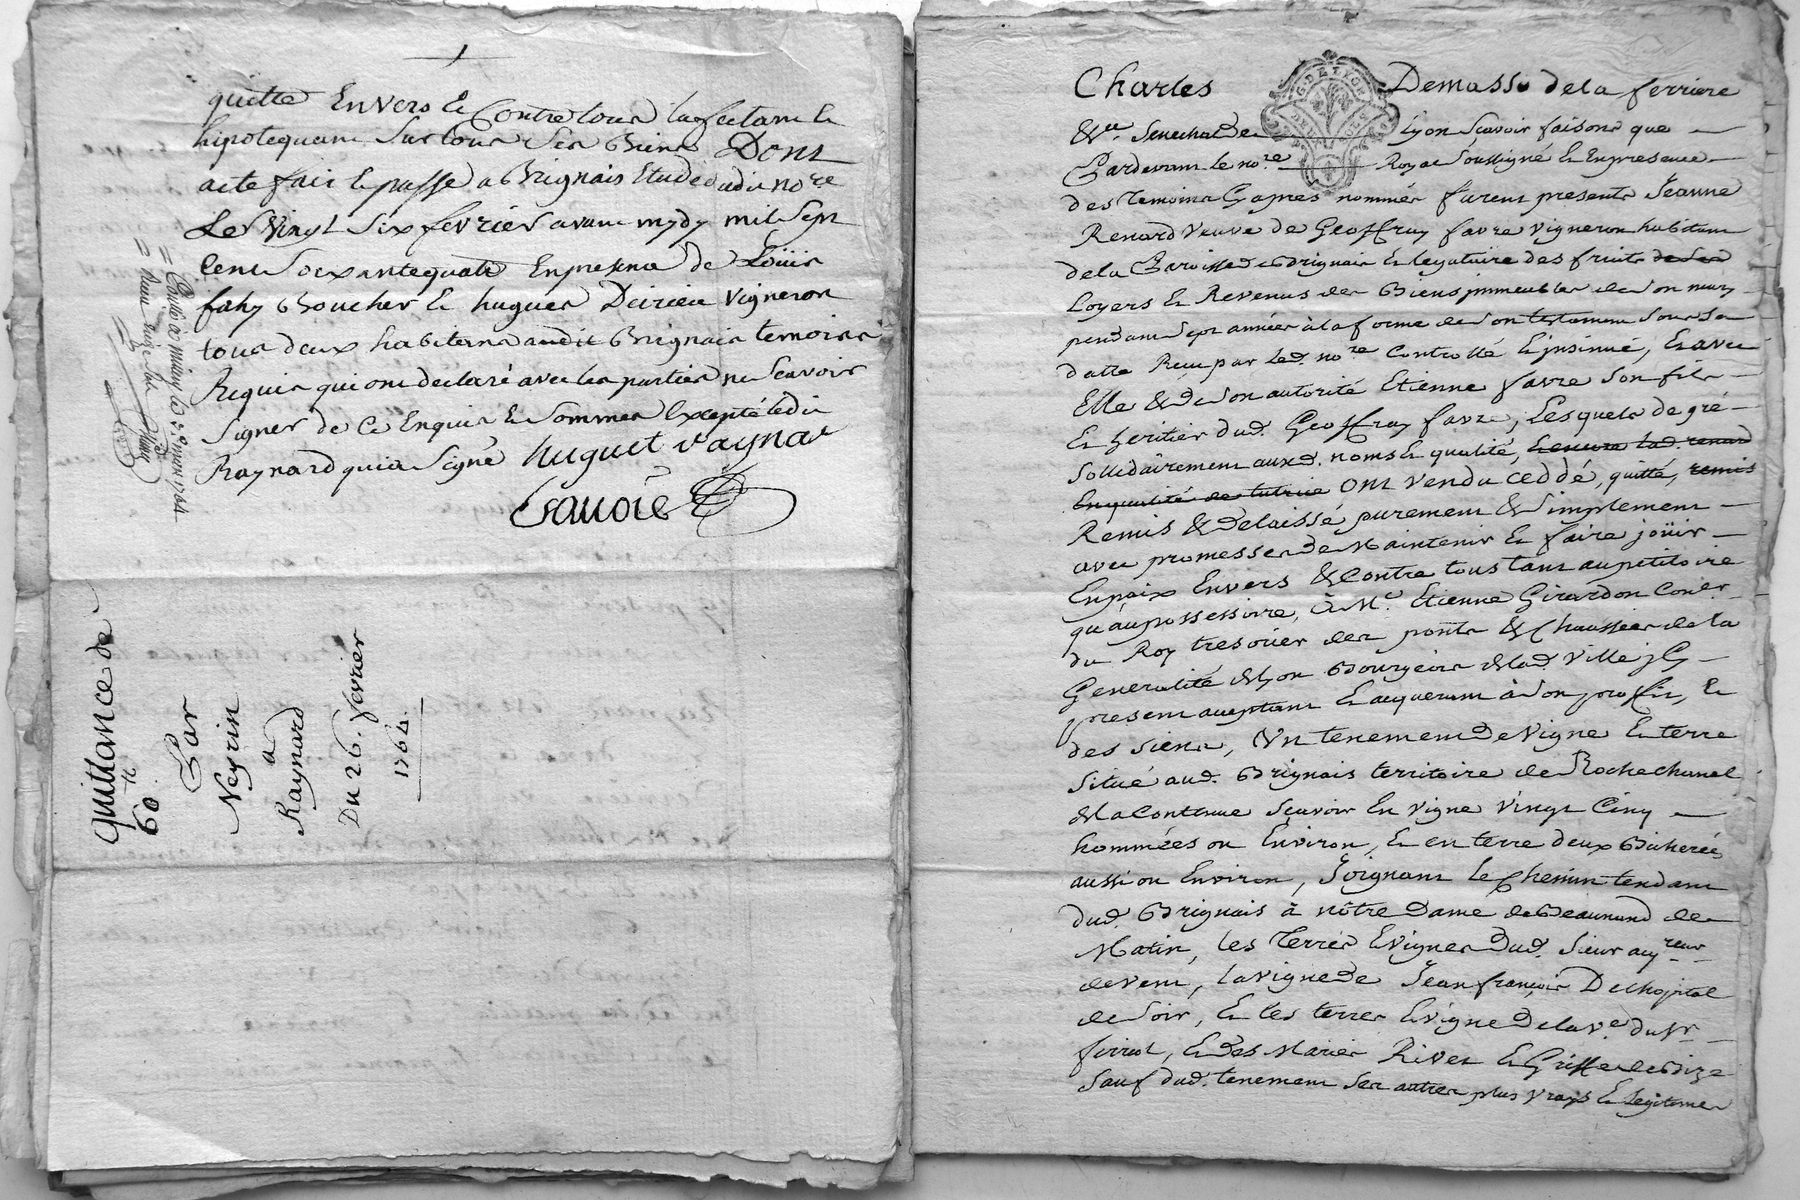 quitte Envers & Contre tous luffectant &
hipotequant Sur tous Ses Biens Dont
acte fait & passé a Brignais Etude dudit nore
Le Vingt Six fevrier avant mydy mil Sept
Cent Soixante quatre En presence de Loüis
fahy Boucher & hugues Deirieu Vigneron
tous deux habitans audit Brignais temoins
Requis qui ont declaré avec les parties ne Scavoir
Signer de Ce Enquis & Sommes Excepté ledit
Raynard qui a Signé huguet raynar
Cravoie
Quittance de
60 tt
Par
Neyrin
a
Raynard
Du 26. fevrier
1764.
Charles Demasso de la ferriere
Senechal de Lyon Scavoir faisons que
Pardevant le nore Royal Soussigné & En presence
des Temoins Cy apres nommés furent presents Jeanne
Renard Veuve de Geoffray favre Vigneron habitant
de la Paroisse de Brignais & legataire des fruits de Ses
Loyers & Revenus des Biens immeubles de Son mary
pendant Sept années à la forme de Son testament Sous Sa
datte Reçu par led. nore Controllé & insinué, & avec
Elle & de Son autorité Etienne favre Son fils
& heritier dud. Geoffray favre, Lesquels de gré
Sollidairement auxd. noms & qualité, lad. renard
En qualité de tutrice Ont Vendu Ceddé, quitté, remis
Remis & Delaissé purement & Simplement
avec promesse de Maintenir & faire joüir
En paix Envers & Contre tous tant au petitoire
qu'au possessoire, à Mr. Etienne Girardon Coner
du Roy tresorier des ponts & Chaussées de la
Generalité de Lyon Bourgeois de lad. Ville icy
present acceptant & acquerant à Son profit, &
des Siens, Un tenement de Vigne & terre
Situé aud. Brignais territoire de Rochechanal
de la Contenue Scavoir En Vigne Vingt Cinq
hommées ou Environ, & en terre deux Bicherées
aussi ou Environ, Joignant le Chemin tendant
dud. Brignais à nôtre Dame de Beaunand de
Matin, les Terres & Vignes dud. Sieur aqreur
de Vent, la Vigne de Jean françois Delhopital
de Soir, & les terres & Vigne de la Ve du Sr
& des Mariés Rivet & Griffe de Bize
Sauf dud. tenement Ses autres plus Vrays & legitimes